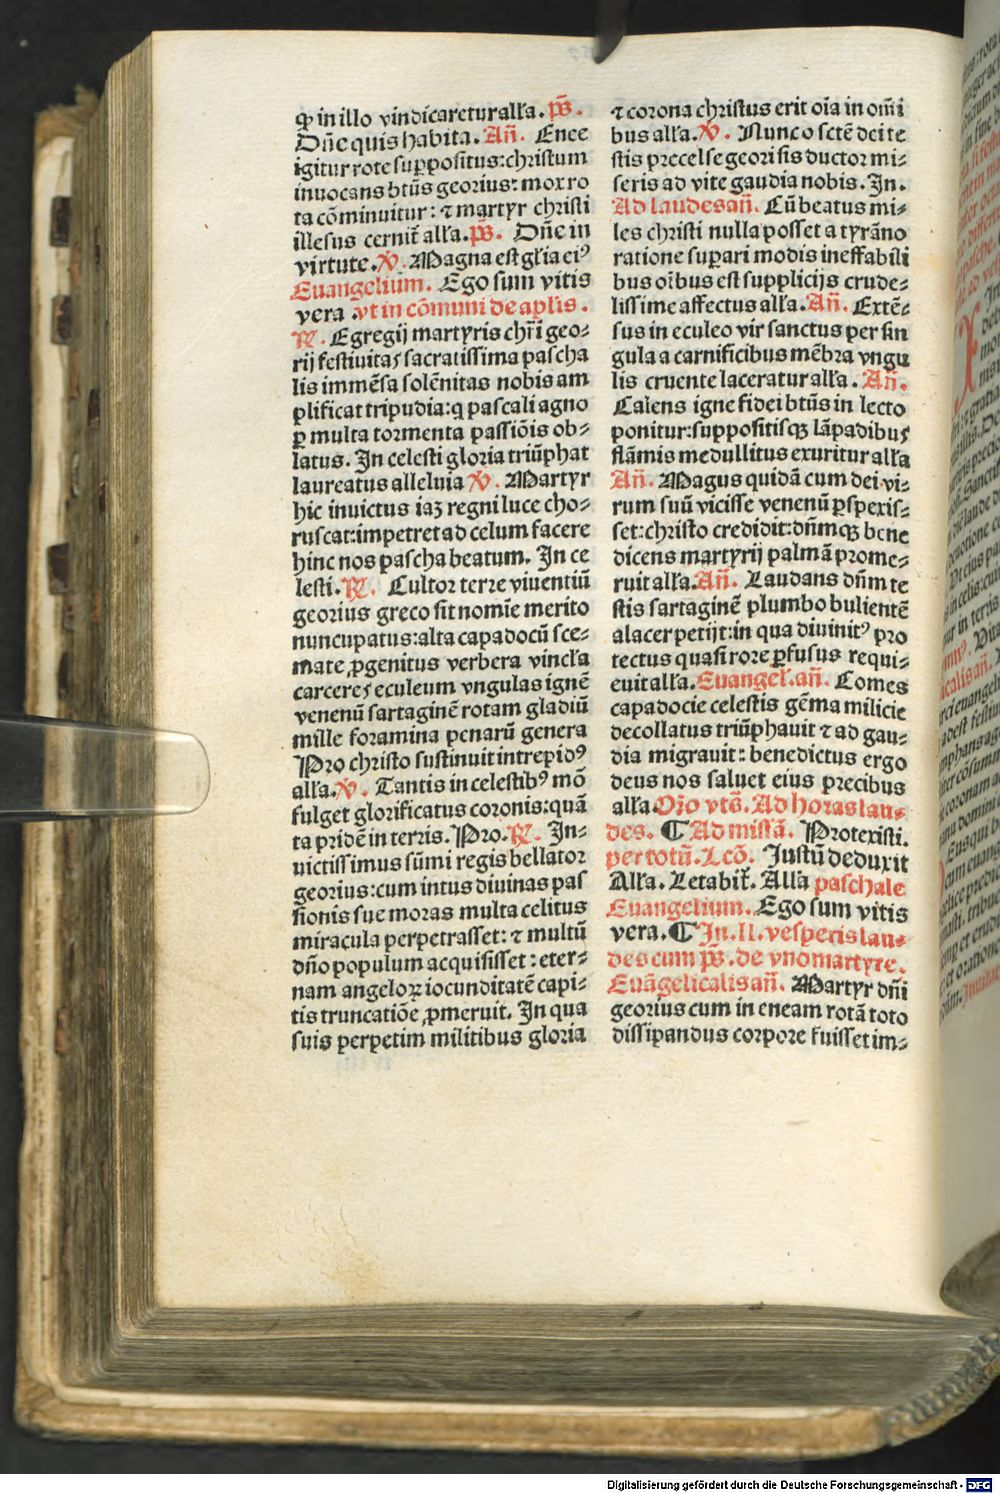 ꝙ in illo vindicaretur alľa. pš.
Dñe quis habita. Añ. Enee
igitur rote suppositus: christum
inuocans btũs georius: mox ro
ta cõminuitur: ⁊ martyr christi
illesus cernit̃ alľa. pš. Dñe in
virtute. ℣. Magna est gľia eiꝰ
Euangelium. Ego sum vitis
vera. vt in cõmuni de aplis.
℞. Egregij martyris chr̃i geo⸗
rij festiuitas sacratissima pascha
lis immẽsa solẽnitas nobis am
plificat tripudia: q̄ pascali agno
ꝑ multa tormenta passiõis ob⸗
latus. In celesti gloria triũphat
laureatus alleluia ℣. Martyr
hic inuictus iaʒ regni luce cho⸗
ruscat: impetret ad celum facere
hinc nos pascha beatum. In ce
lesti. ℞. Cultor terre viuentiũ
georius greco sit nomĩe merito
nuncupatus: alta capadocũ sce⸗
mate ꝓgenitus verbera vincľa
carceres eculeum vngulas ignẽ
venenũ sartaginẽ rotam gladiũ
mille foramina penarũ genera
Pro christo sustinuit intrepidꝰ
alľa. ℣. Tantis in celestibꝰ mõ
fulget glorificatus coronis: quã
ta pridẽ in terris. Pro. ℞. In⸗
uictissimus sũmi regis bellator
georius: cum intus diuinas pas
sionis sue moras multa celitus
miracula perpetrasset: ⁊ multũ
dño populum acquisisset: eter⸗
nam angeloꝝ iocunditatẽ capi⸗
tis truncatiõe ꝓmeruit. In qua
suis perpetim militibus gloria
⁊ corona christus erit oĩa in om̃i
bus alľa. ℣. Nunc o sctẽ dei te
stis precelse geori sis ductor mi⸗
seris ad vite gaudia nobis. In.
Ad laudes añ. Cũ beatus mi⸗
les christi nulla posset a tyrãno
ratione supari modis ineffabili
bus oĩbus est supplicijs crude⸗
lissime affectus alľa. Añ. Extẽ⸗
sus in eculeo vir sanctus per sin
gula a carnificibus mẽbra vngu
lis cruente laceratur alľa. Añ.
Calens igne fidei btũs in lecto
ponitur: suppositisqꝫ lãpadibus
flãmis medullitus exuritur alľa
Añ. Magus quidã cum dei vi⸗
rum suũ vicisse venenũ ꝑspexis⸗
set: christo credidit: dñmqꝫ bene
dicens martyrij palmã prome⸗
ruit alľa. Añ. Laudans dñm te
stis sartaginẽ plumbo bulientẽ
alacer petijt: in qua diuinitꝰ pro
tectus quasi rore ꝑfusus requi⸗
euit alľa. Euangeľ. añ. Comes
capadocie celestis gẽma milicie
decollatus triũphauit ⁊ ad gau⸗
dia migrauit: benedictus ergo
deus nos saluet eius precibus
alľa. Oro vtš. Ad horas lau⸗
des. ¶ Ad missã. Protexisti.
per totũ. Lcõ. Iustũ deduxit
Alľa. Letabit̃. Alľa paschale
Euangelium. Ego sum vitis
vera. ¶ In. II. vesperis lau⸗
des cum pš. de vno martyre.
Euãgelicalis añ. Martyr dñi
georius cum in eneam rotã toto
dissipandus corpore fuisset im⸗
Digitalisierung gefördert durch die Deutsche Forschungsgemeinschaft - DFG